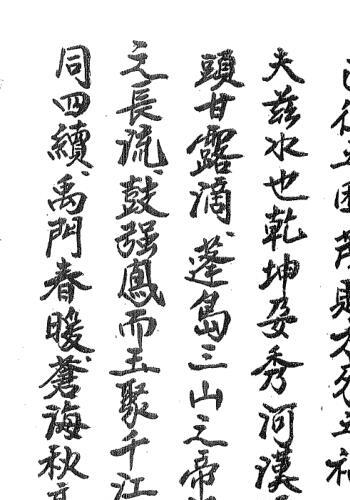 夫茲水也乾坤孕秀河漢
頭甘露滴蓬島三山之帝
之長流鼓强鳳而玉聚千江
同四續禹門春暖蒼海秋高